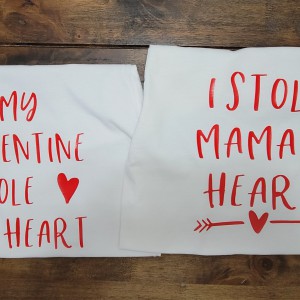 MY
ENTINE
OLE
HEART
I STOL
MAMA
HEAR